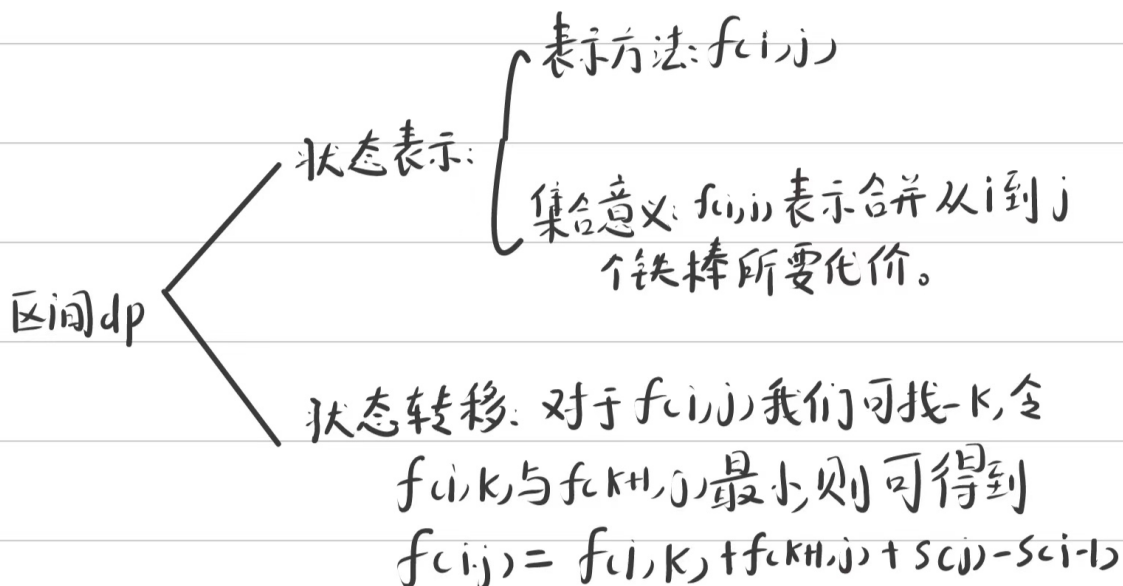 表示方法: f(i,j)
状态表示:
集合意义: f(i,j)表示合并从i到j
个铁棒所要代价。
区间dp
状态转移: 对于f(i,j)我们可找一K,令
f(i,K)与f(K+1,j)最小,则可得到
f(i.j) = f(i,K)+f(K+1,j)+S(j)-S(i-1)